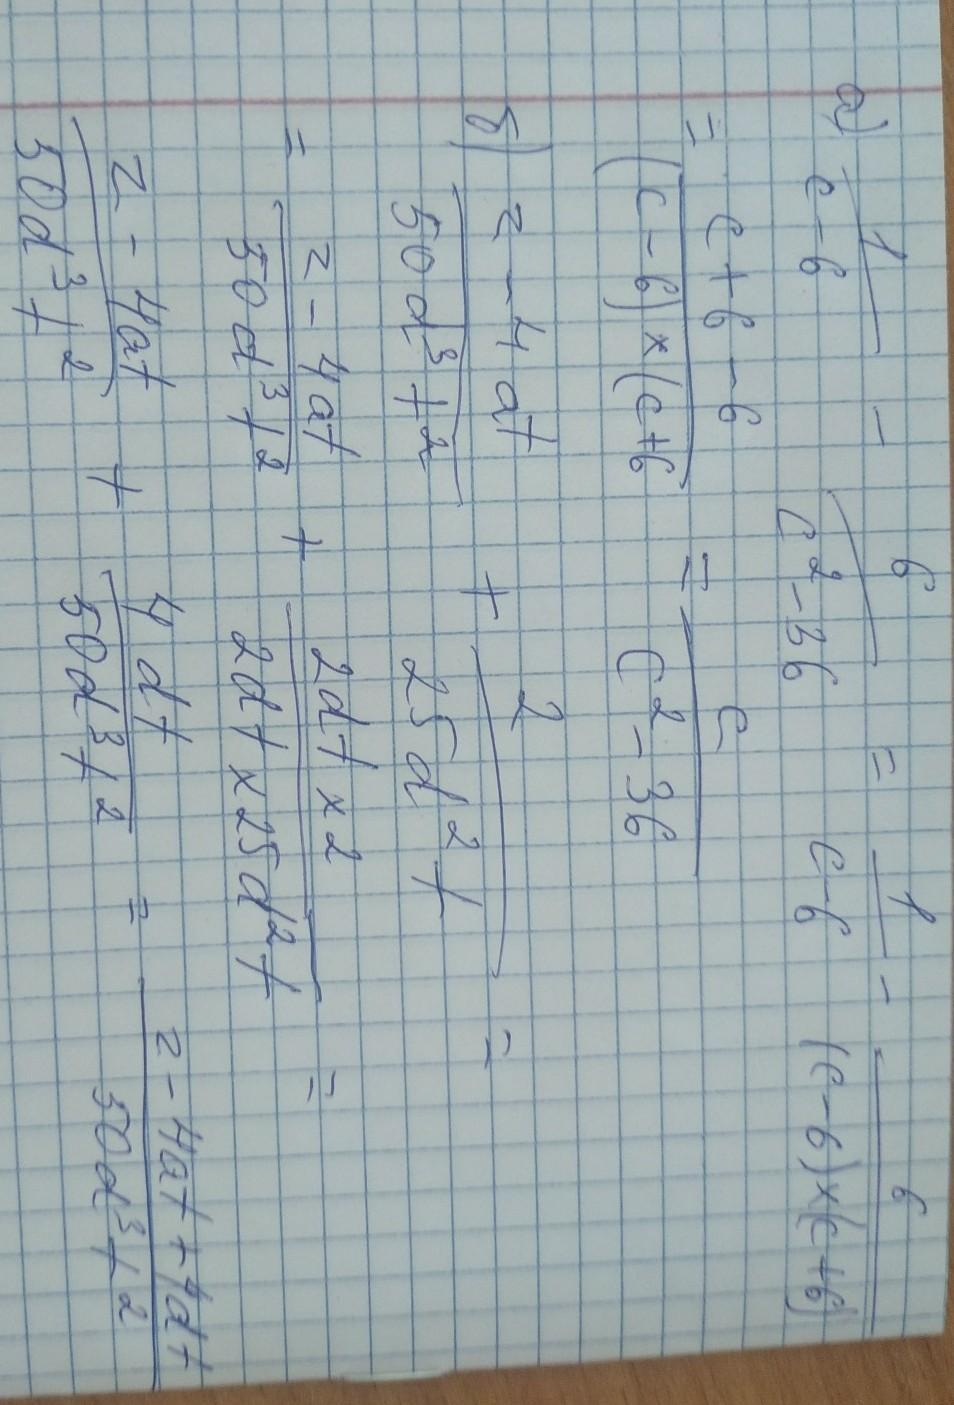 а) 1/(c-6) - 6/(c²-36) = 1/(c-6) - 6/((c-6)×(c+6))
= (c+6-6)/((c-6)×(c+6) = c/(c²-36)
б) (z-4at)/(50d³t²) + 2/(25d²t) =
= (z-4at)/(50d³t²) + (2dt×2)/(2dt×25d²t) =
(z-4at)/(50d³t²) + (4dt)/(50d³t²) = (z-4at+4dt)/(50d³t²)